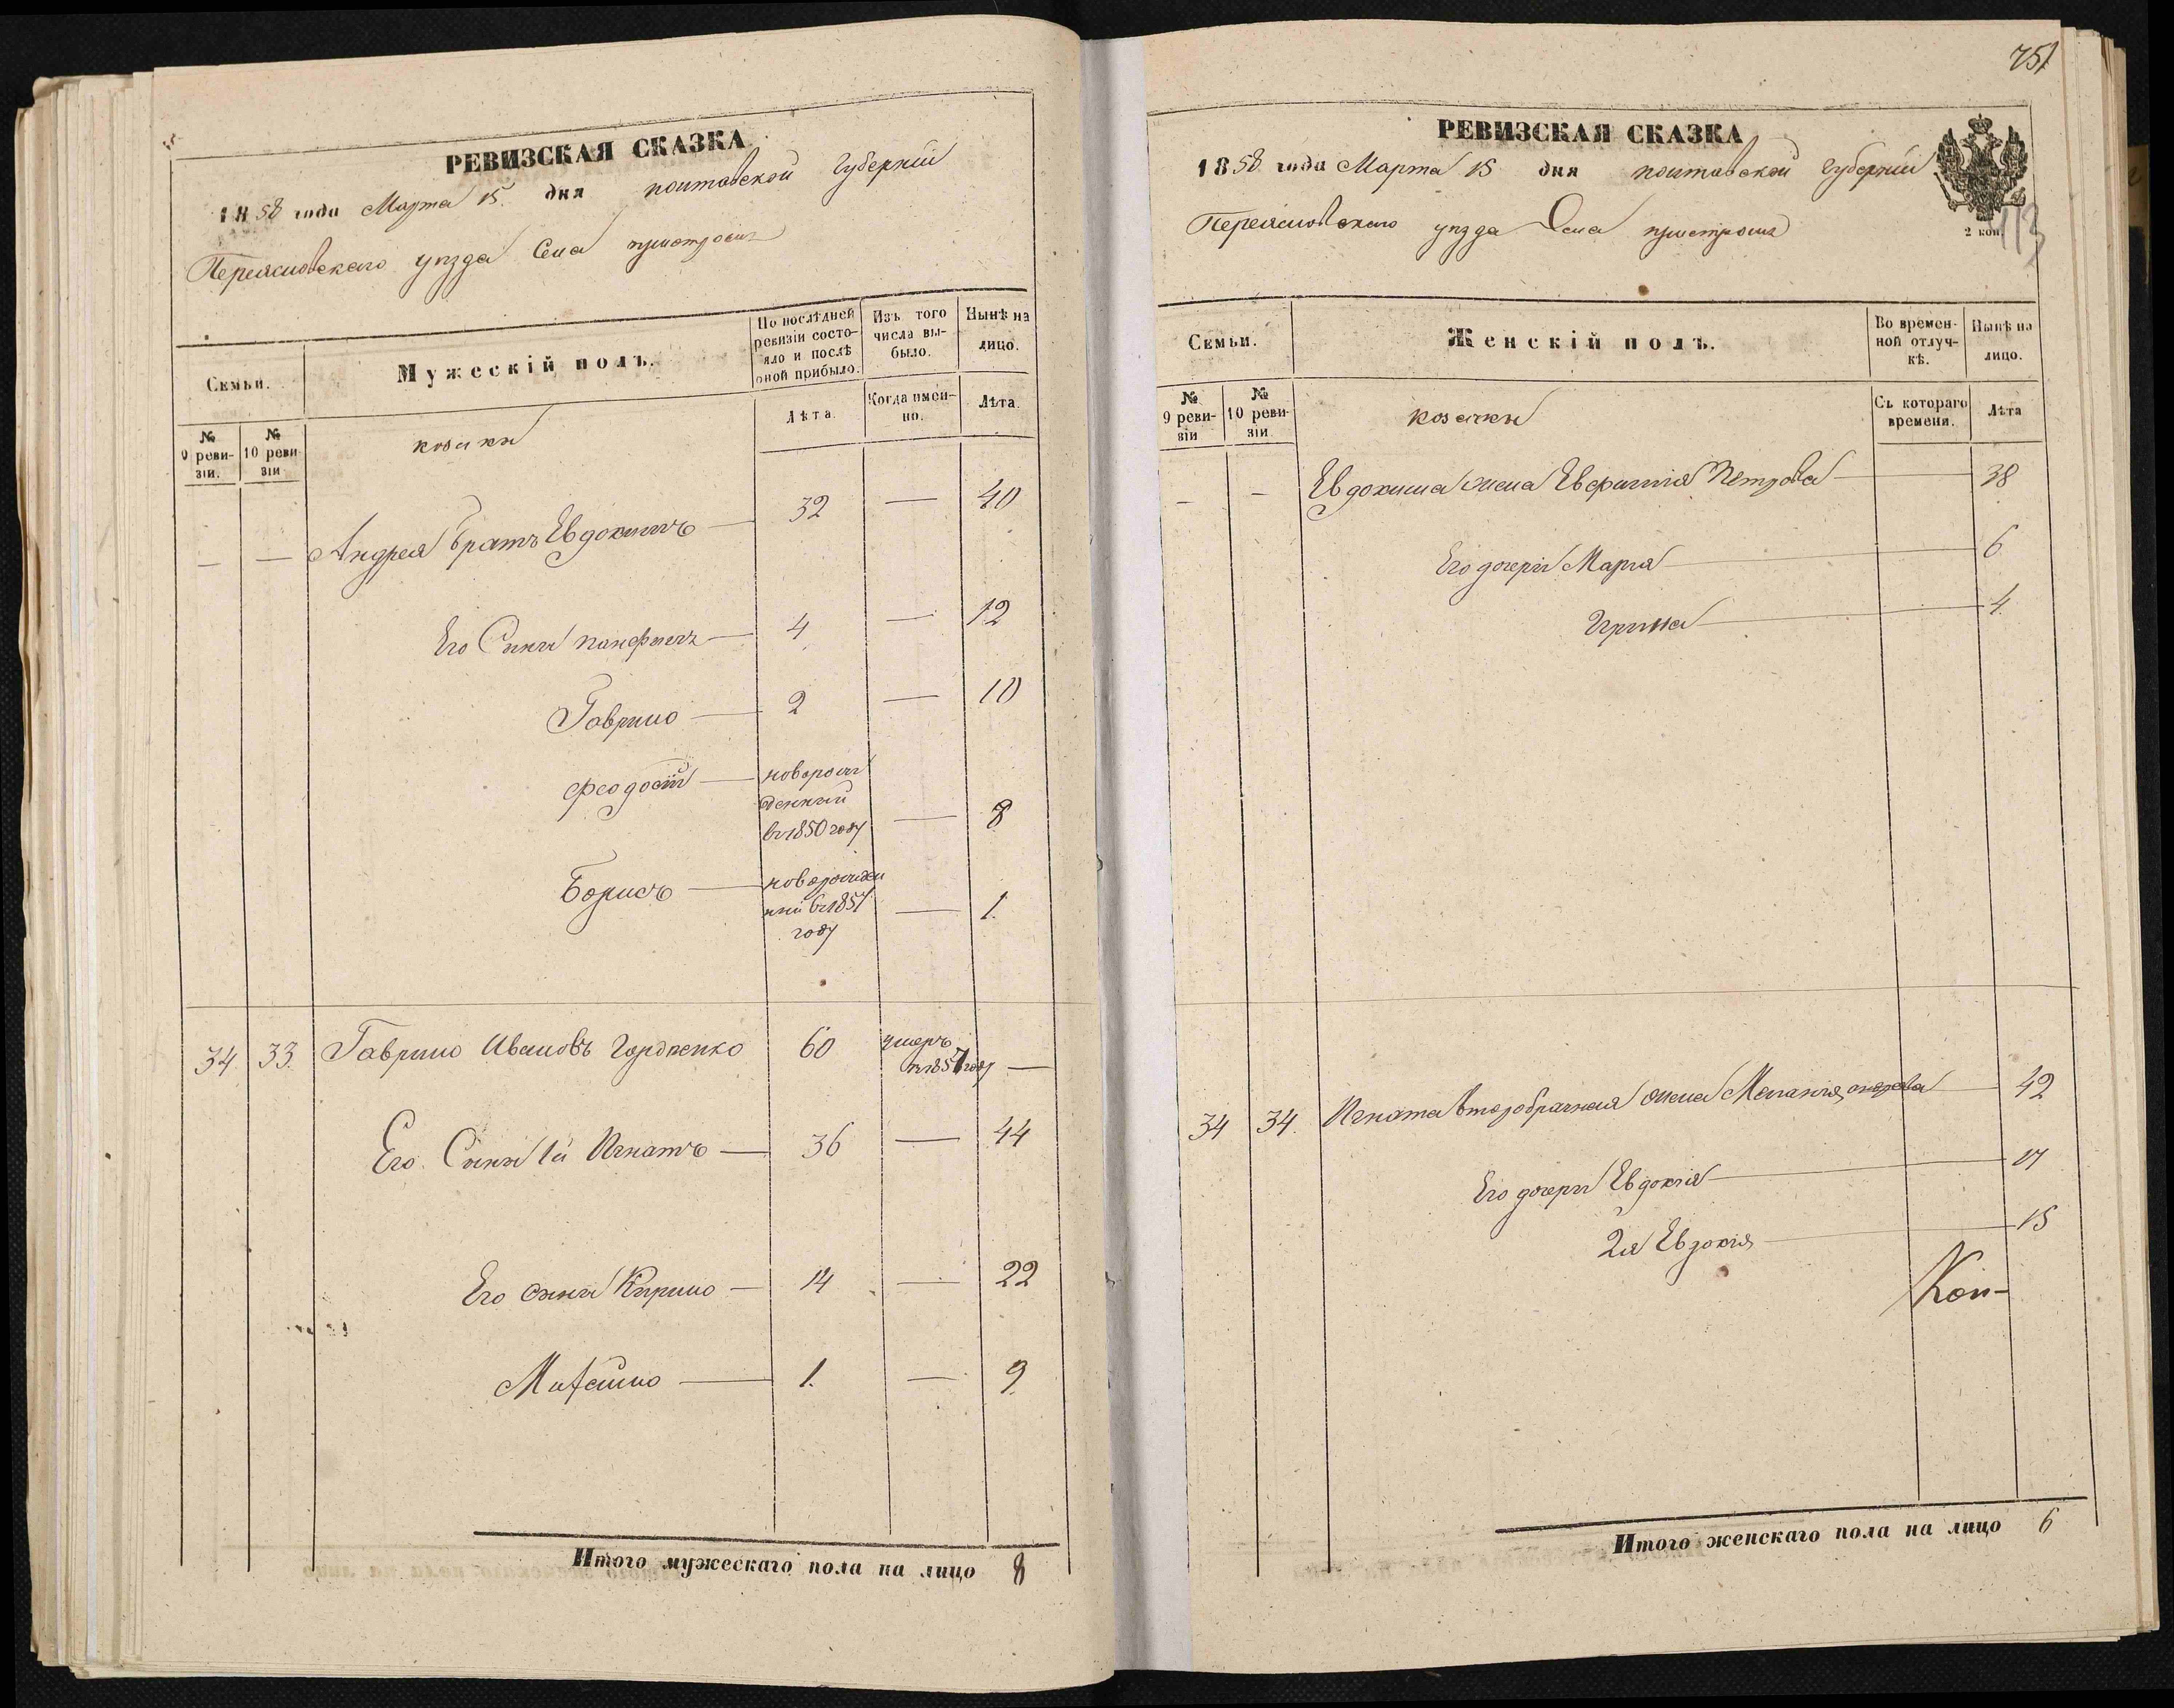 РЕВИЗСКАЯ СКАЗКА
1858 года Марта 15 дня полтавской Губерніи
Переясловскаго уѣзда Села пристромъ
Семьи.
Мужескій полъ.
По послѣдней ревизіи состо-
яло и послѣ
оной прибыло.
Изъ того
числа вы-
было.
Нынѣ на
лицо.
№
9 реви-
зіи.
№
10 реви-
зіи
козаки
Лѣта.
Когда имен-
но.
Лѣта.
— — Андрея братъ Евдокимъ — 32 — 40
Его Сыны панфилъ — 4 — 12
Гаврило — 2 — 10
феодосій — новорож
денный
въ 1850 году — 8
Борисъ — новорожден
ный въ 1857
году — 1.
34. 33. Гаврило Ивановъ Гордіенко 60 умеръ
въ 1857 году —
Его Сыны 1й Игнатъ — 36 — 44
Его сыны Кирило — 14 — 22
Михайло — 1. — 9
Итого мужескаго пола на лицо 8
751
РЕВИЗСКАЯ СКАЗКА
1858 года Марта 15 дня полтавской Губерніи
Переясловскаго уѣзда Села пристромъ
2 коп.
113
Семьи.
Женскій полъ.
Во времен-
ной отлуч-
кѣ.
Нынѣ на
лицо.
№
9 реви-
зіи
№
10 реви-
зіи.
козачки
Съ котораго
времени.
Лѣта
— — Евдокима жена Евфимія Петрова — 38
Его дочери Марія — 6
Ирина — 4.
34 34. Игната второбрачная жена Меланія — 42
Его дочери Евдокія — 17
2я Евдокія — 15
Коп-
Итого женскаго пола на лицо 6